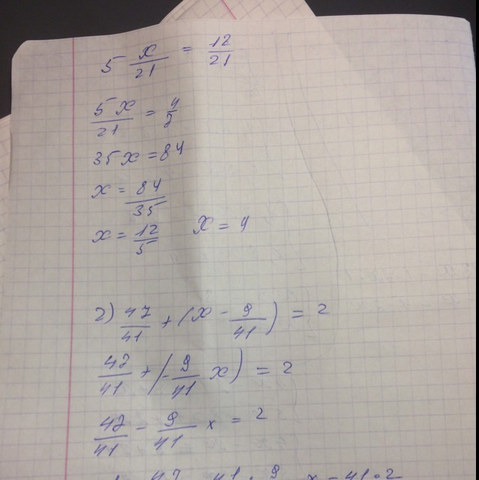 5 x/21 = 12/21
5x/21 = 4/7
35x = 84
x = 84/35
x = 12/5 x = 4
2) 47/41 + (x - 9/41) = 2
47/41 + (-9/41 x) = 2
47/41 - 9/41 x = 2